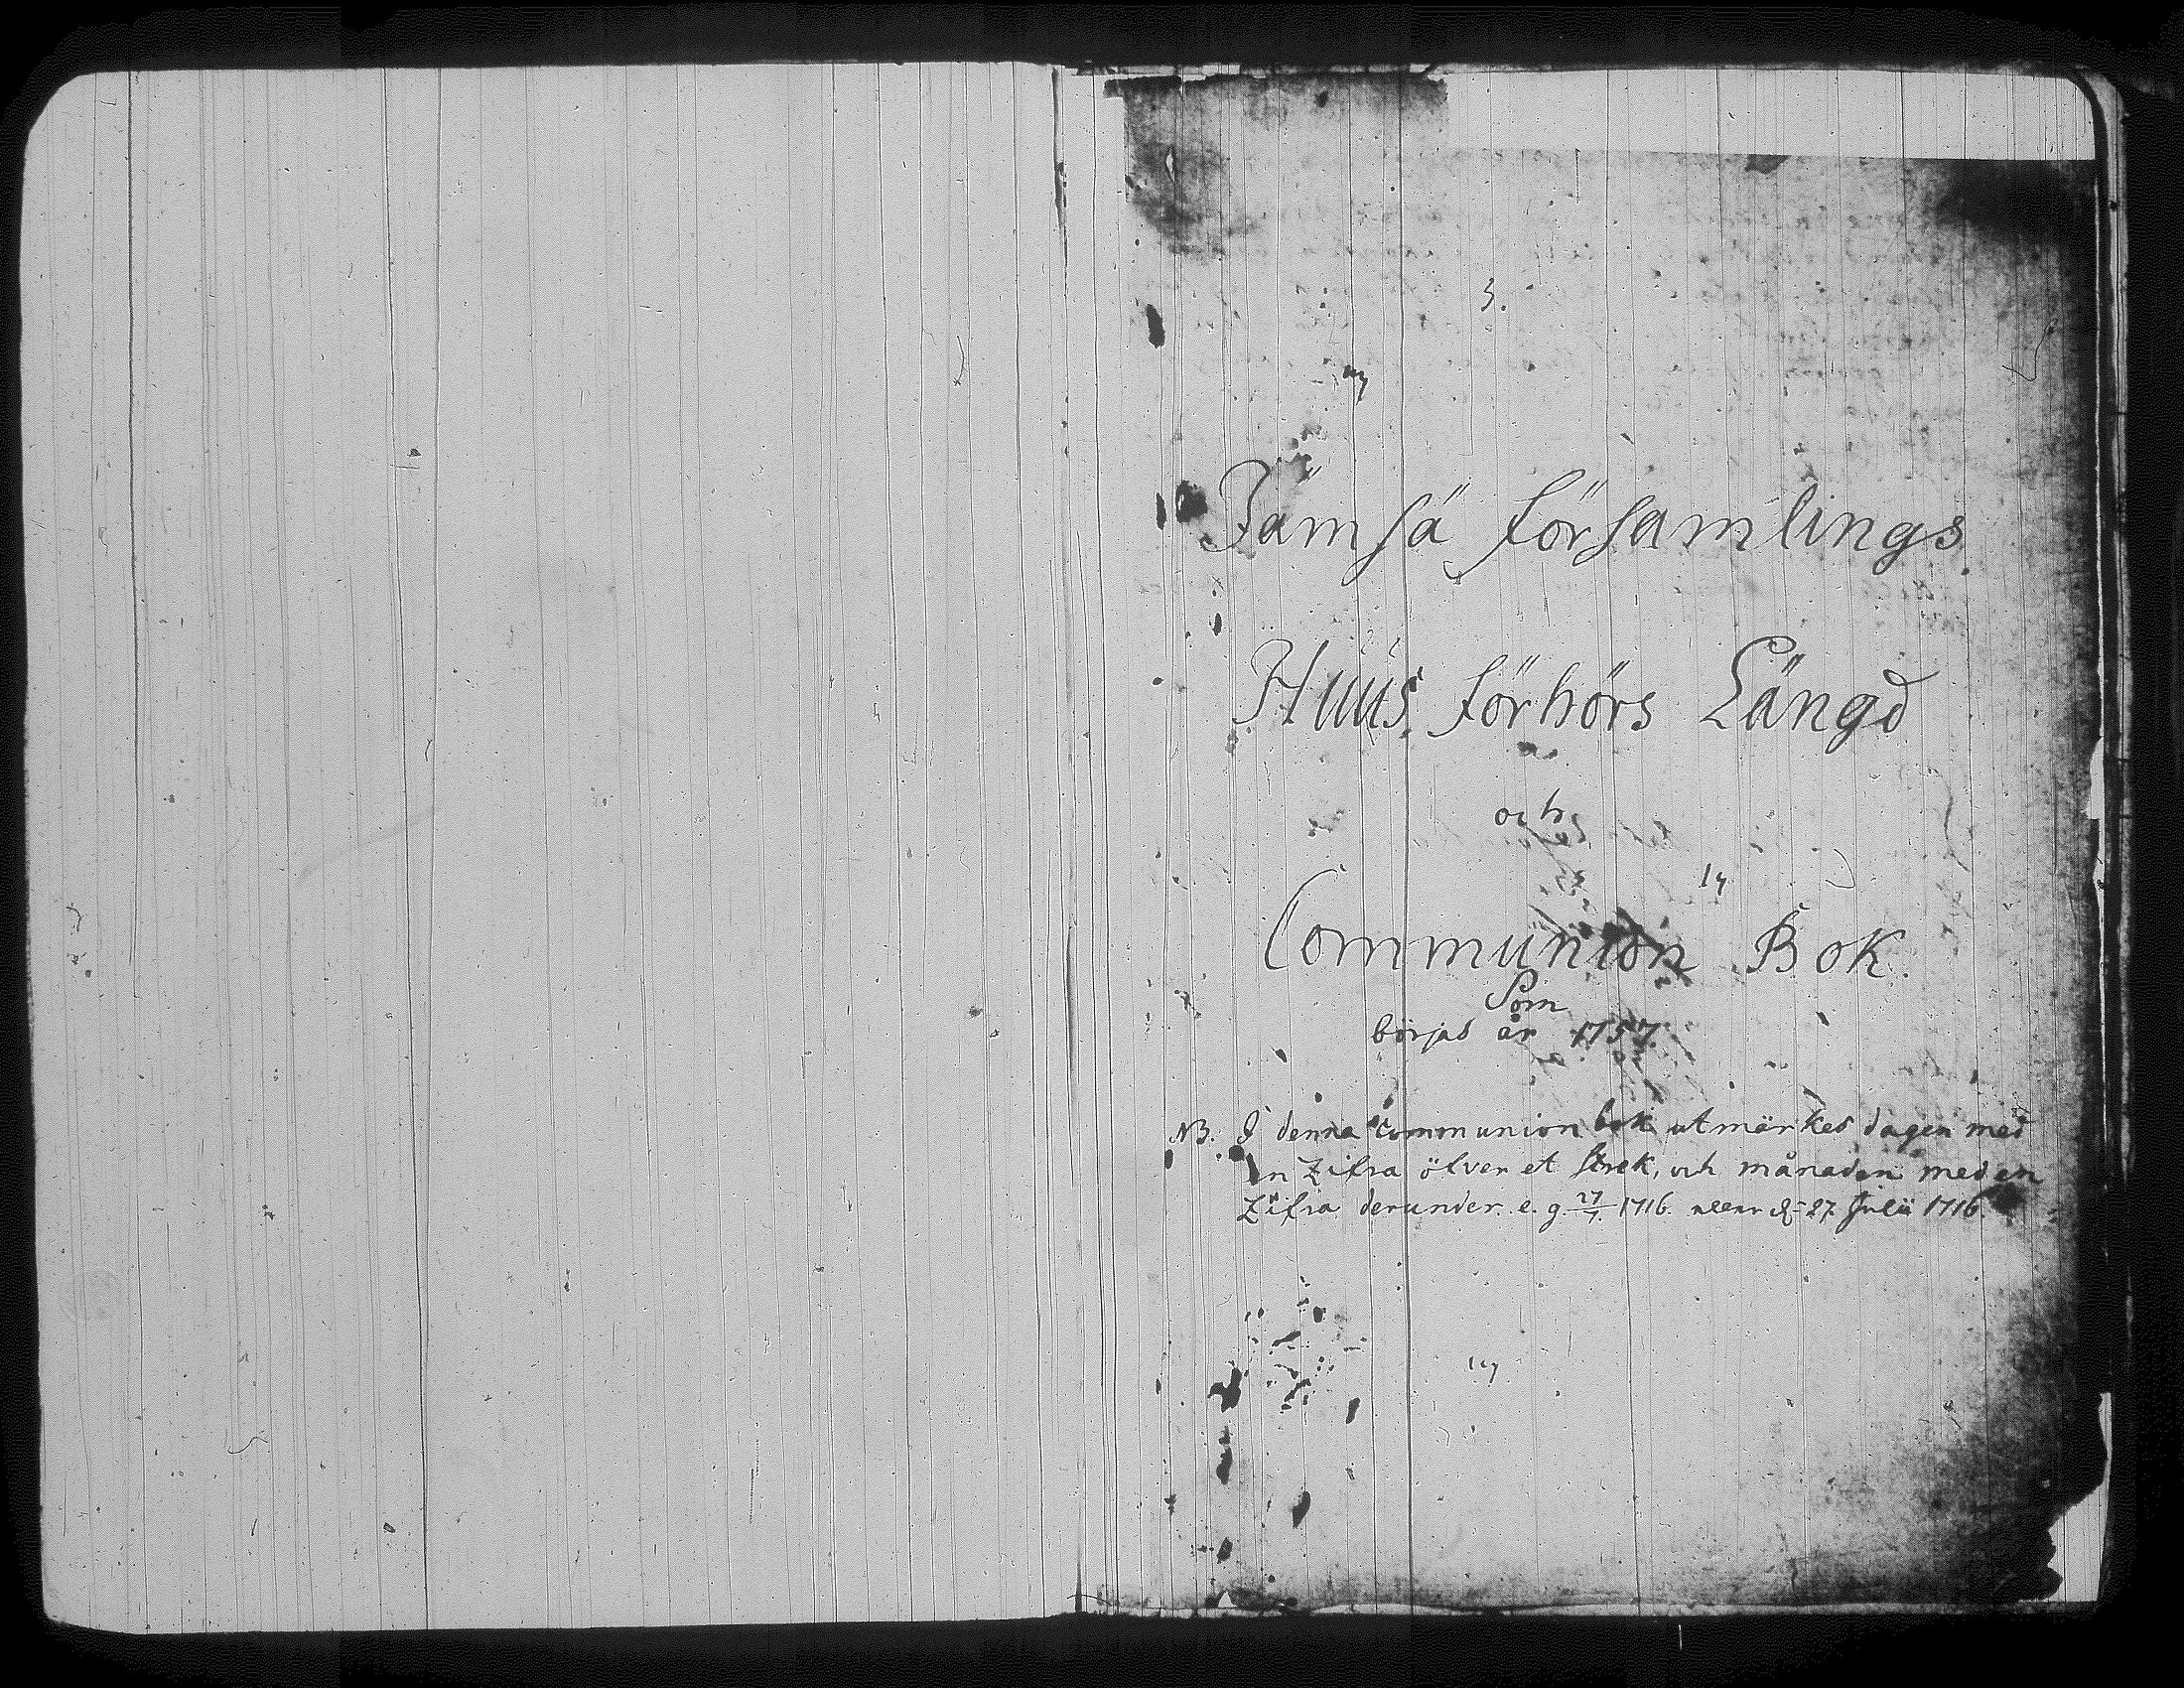 3.
Jämsä församlings
Huus förhörs Längd
och
Communion Bok.
Som
börjas år 1757.
NB. I denna communion bok utmärkes dagen med
en Zifra öfver et strek, och månaden med en
Zifra derunder. e. g. 27/7. 1716. 27 Julii 1716.